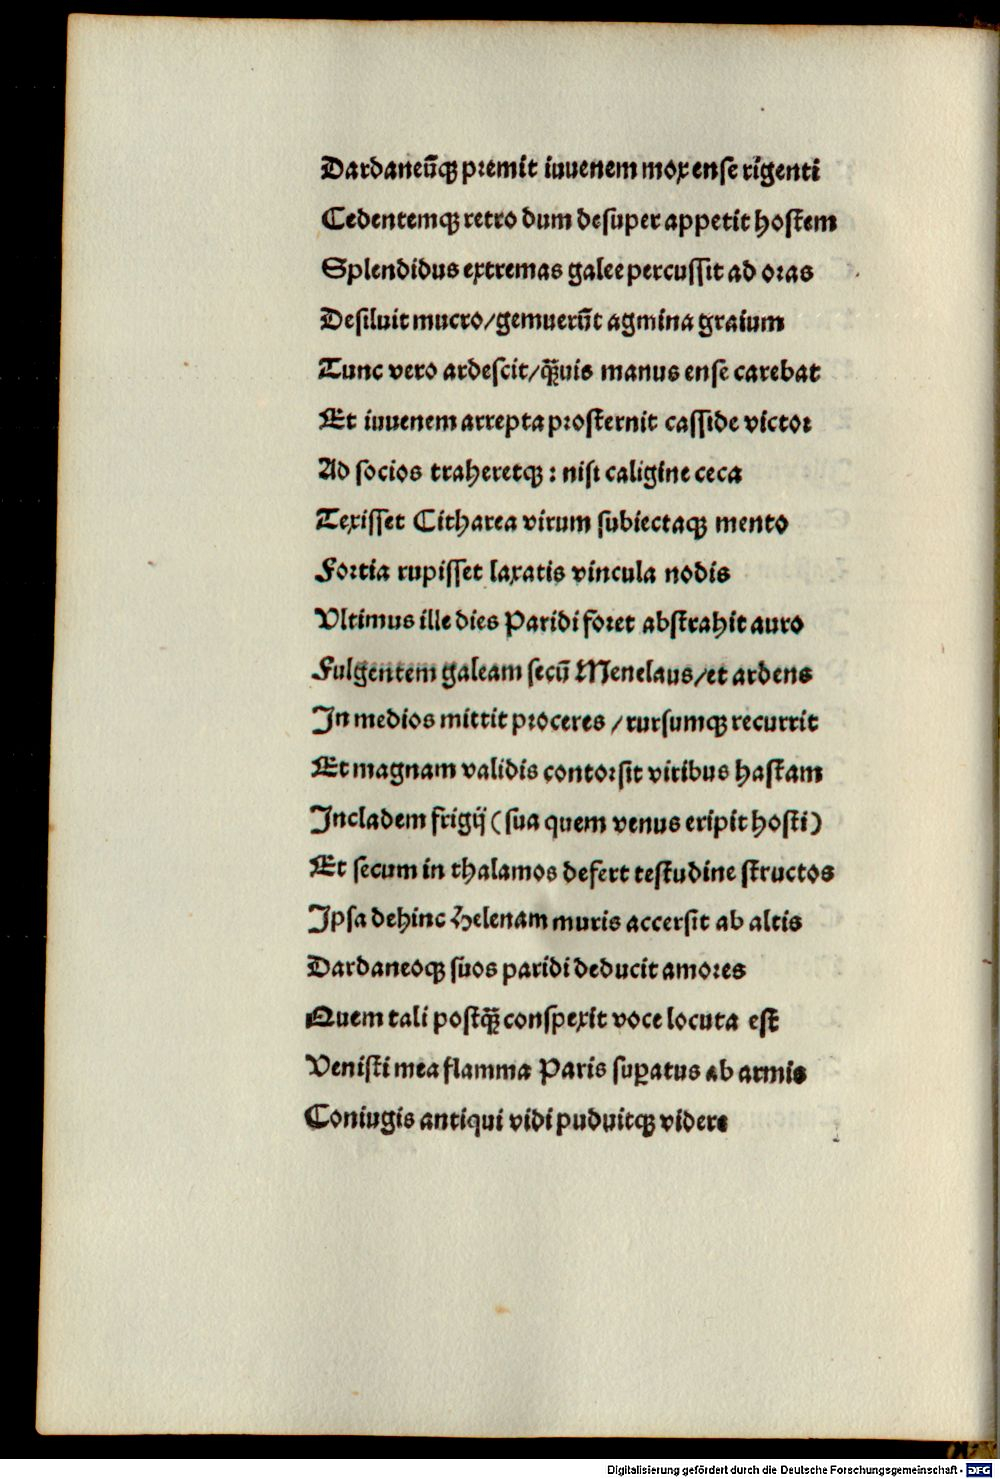 Dardaneũqꝫ premit iuuenem mox ense rigenti
Cedentemqꝫ retro dum desuper appetit hostem
Splendidus extremas galee percussit ad oras
Desiluit mucro/gemuerũt agmina graium
Tunc vero ardescit/q̃uis manus ense carebat
Et iuuenem arrepta prosternit casside victor
Ad socios traheretqꝫ: nisi caligine ceca
Texisset Citharea virum subiectaqꝫ mento
Fortia rupisset laxatis vincula nodis
Vltimus ille dies Paridi foret abstrahit auro
Fulgentem galeam secũ Menelaus/et ardens
In medios mittit proceres /rursumqꝫ recurrit
Et magnam validis contorsit viribus hastam
Incladem frigij (sua quem venus eripit hosti)
Et secum in thalamos defert testudine structos
Ipsa dehinc Helenam muris accersit ab altis
Dardaneoqꝫ suos paridi deducit amores
Quem tali postq̃ conspexit voce locuta est
Venisti mea flamma Paris suꝑatus ab armis
Coniugis antiqui vidi puduitqꝫ videre
Digitalisierung gefördert durch die Deutsche Forschungsgemeinschaft - DFG